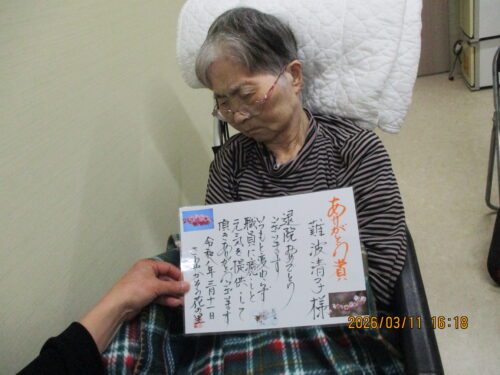 ありがとう賞
難波清子様
退院おめでとう
ございます
いつもと変わらず
職員に癒しと
元気を提供して
頂きありがとうございます
令和八年三月十一日
2026/03/11 16:18